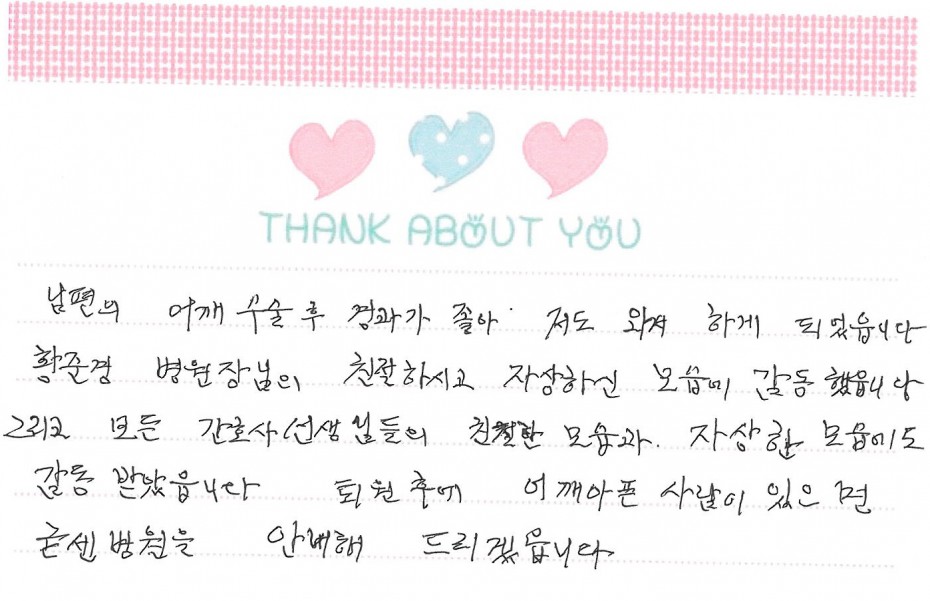 THANK ABOUT YOU
남편의 어깨 수술 후 경과가 좋아 저도 와서 하게 되었읍니다
황준경 병원장님의 친절하시고 자상하신 모습에 감동 했읍니다
그리고 모든 간호사 선생님들의 친절한 모습과. 자상한 모습에도
감동 받았읍니다 퇴원 후에 어깨아픈 사람이 있으면
굳센병원을 안내해 드리겠읍니다